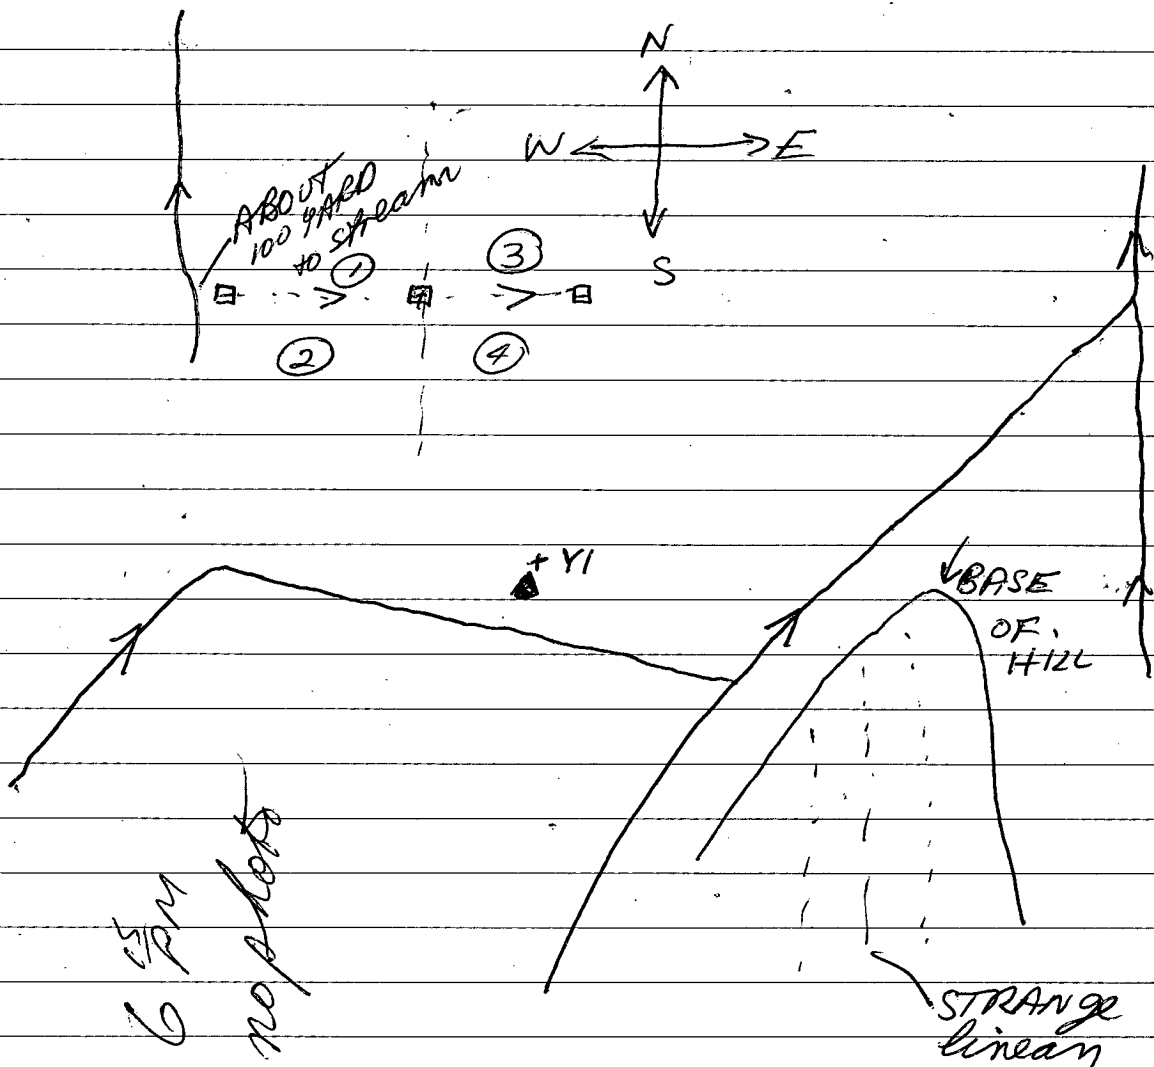 N
W E
S
ABOUT
100 YARD
to stream
① ③
② ④
+ Y1
BASE
OF
HILL
6 PM
no photo
STRANge
linean